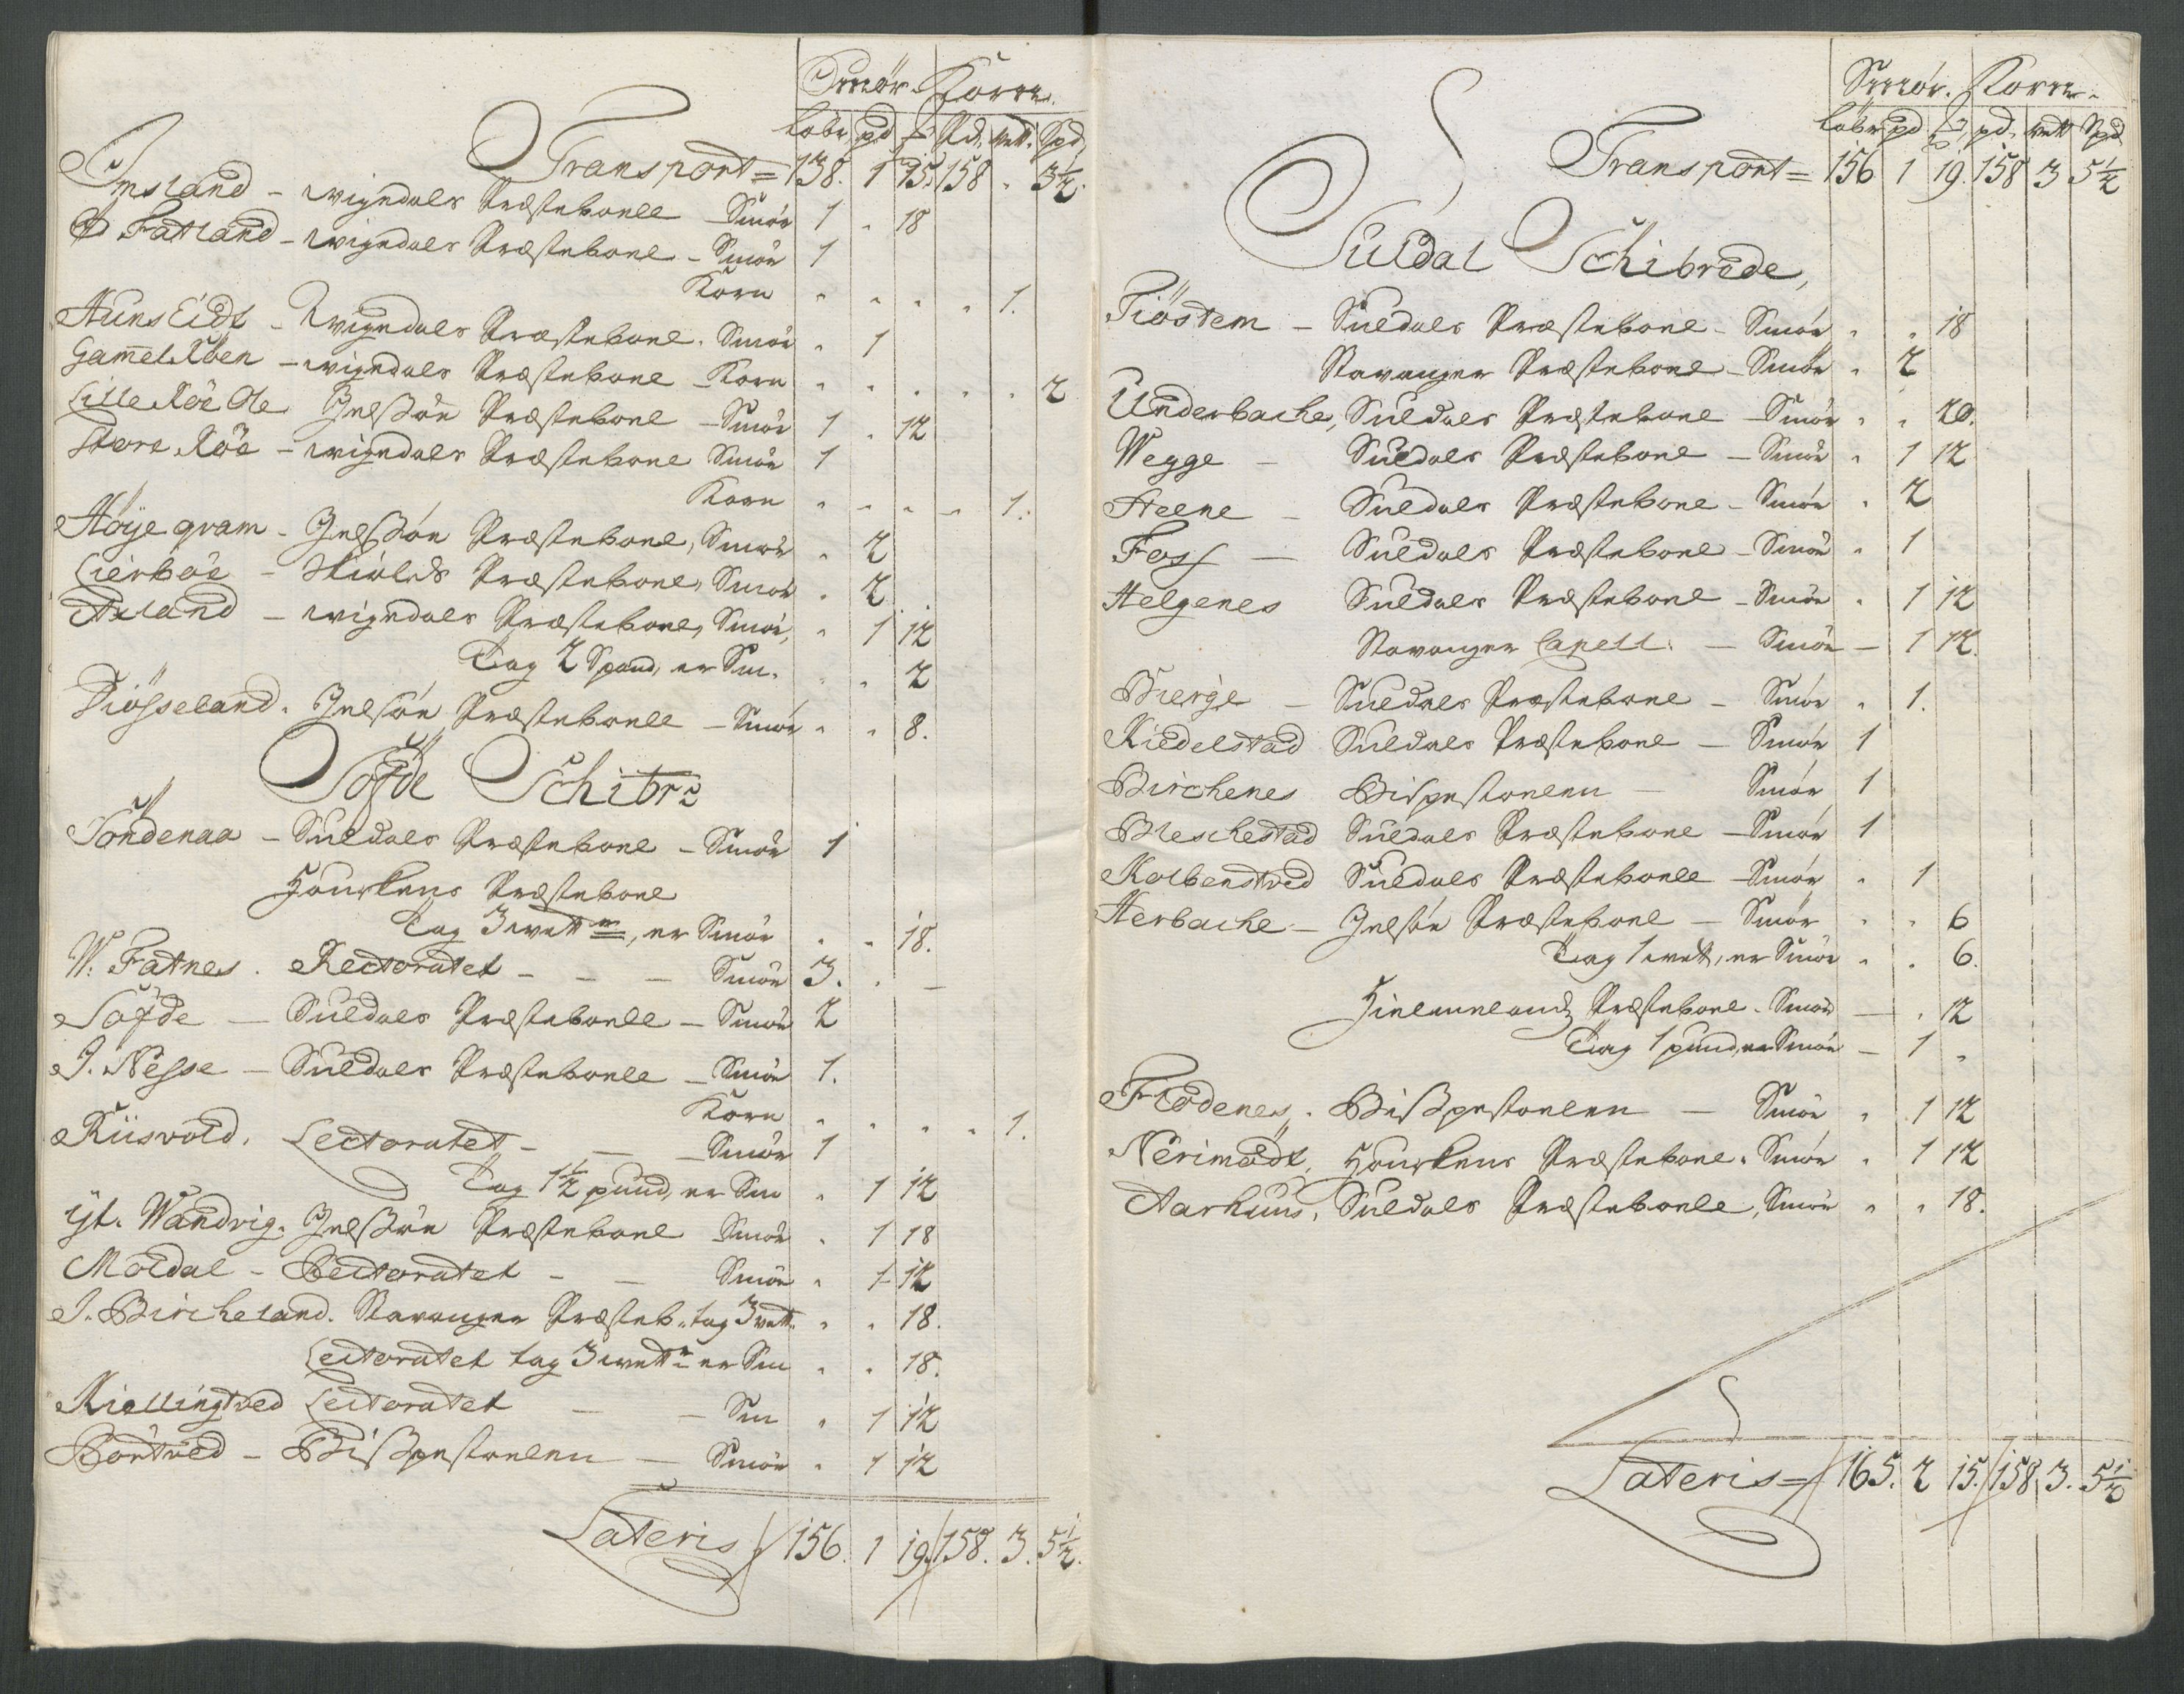 Smör. Korn.
Løbr. pd ℔ Pd. Vett. Spd.
Transport = 138. 1 15. 158 " 3½.
Imsland - Wigedals Præstebolle - Smör 1 " 18
Ø Fatland - Wigedals Præstebole - Smör 1
Korn " " " " 1.
Huns Eidt - Wigedals Præstebole. Smör " 1
Gammel Röen - Wigedals Præstebole - Korn " " " " " 2
Lille Röe Ole Jelsöe Præstebole - Smör 1 " 12
Store Röe - Wigedals Præstebole Smör 1
Korn " " " " 1.
Höyegram - Jelsöe Præstebole, Smör " 2
Lierböe - Skiolds Præstebole, Smör " 2
Axland - Wigedals Præstebole, Smör, " 1 12
Tag 2 Spand, er Sm. " " 2
Tiösseland. Jelsöe Præstebolle - Smör " " 8.
Söfde Schibr:
Tondenaa - Suldals Præstebole - Smör 1
Houskens Præstebole
Tag 3 wett:, er Smör " " 18.
W: Fatnes. Rectoratet - - - Smör 3. " -
Söfde - Suldals Præstebolle - Smör 2
I. Nesse - Suldals Præstebolle - Smör 1.
Korn " " " " 1.
Riisvold. Lectoratet - - - Smör 1
Tag 1½ pund, er Sm " 1 12
yt. Wandvig. Jelsöe Præstebole Smör " 1 18
Moldal - Rectoratet - - Smör " 1 12
I. Bircheland. Stavanger Præsteb. tag 3 vett. " " 18.
Lectoratet tag 3 wett: er Sm " " 18.
Kiellingtved Lectoratet - - Sm " 1 12
Börtved - Bispestolen - Smör " 1 12
Lateris 156. 1 19. 158. 3. 5½.
Smör. Korn.
Løbr pd ℔ pd. Vett Spd
Transport = 156 1 19. 158 3 5½
Suldal Schibrede,
Tiöstem - Suldals Præstebole - Smör " " 18
Stavanger Præstebole - Smör " 2
Underbache, Suldals Præstebole - Smör " " 20.
Wegge - Suldals Præstebole - Smör " 1 12
Steene - Suldals Præstebole - Smör " 2
Foss - Suldals Præstebole - Smör " 1
Helgenes Suldals Præstebole - Smör " 1 12
Stavanger Capell. - Smör - 1 12.
Bierge - Suldals Præstebole - Smör " 1.
Kiedelstad Suldals Præstebole - Smör 1
Birchenes Bispestolen - Smör 1
Bleschestad Suldals Præstebole - Smör 1
Kolbenstved Suldals Præstebolle - Smör " 1
Herbache - Jelsöe Præstebole - Smör " " 6
Tag 1 wett, er Smör " " 6.
Præstebole. Smör - " 12
Tag 1 pund, er Smör - 1 "
Flodenes. Bispestolen - Smör " 1 12
Nerimodt, Houskens Præstebole. Smör " 1 12
Aarhuus, Suldals Præstebolle, Smör " " 18.
Lateris = 165. 2 15. 158. 3. 5½